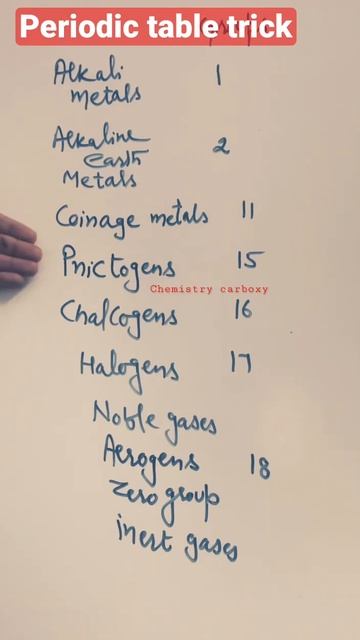 Periodic table trick
Alkali 1
metals
Alkaline 2
earth
Metals
Coinage metals 11
Pnictogens 15
Chemistry carboxy
Chalcogens 16
Halogens 17
Noble gases
Aerogens 18
Zero group
inert gases